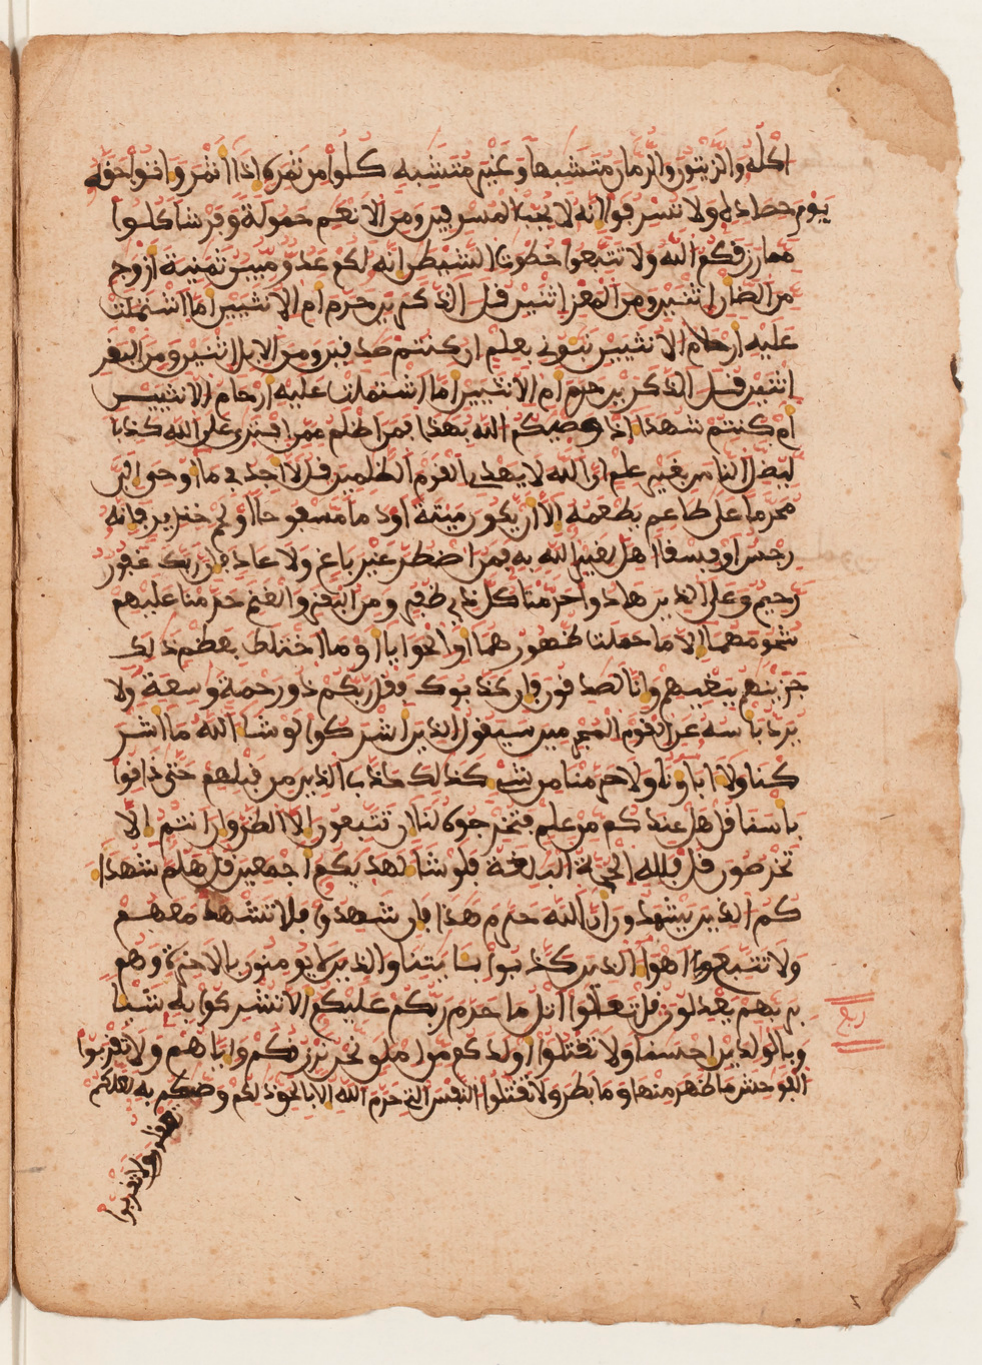 اكله والزيتون والرمان متشبها وغير متشبه كلوا من ثمره اذا اثمر واتوا حقه
يوم حصاده ولا تسرفوا انه لا يحب المسرفين ومن الانعم حمولة وفرشا كلوا
مما رزقكم الله ولا تتبعوا خطوت الشيطن انه لكم عدو مبين ثمنية ازوج
من الضان اثنين ومن المعز اثنين قل الذكرين حرم ام الانثيين اما اشتملت
عليه ارحام الانثيين نبوني بعلم ان كنتم صدقين ومن الابل اثنين ومن البقر
اثنين قل الذكرين حرم ام الانثيين اما اشتملت عليه ارحام الانثيين
ام كنتم شهدا اذ وصيكم الله بهذا فمن اظلم ممن افترى على الله كذبا
ليضل الناس بغير علم ان الله لا يهدي القوم الظلمين قل لا اجد في ما اوحي الي
محرما على طاعم يطعمه الا ان يكون ميتة او دما مسفوحا او لحم خنزير فانه
رجس او فسقا اهل لغير الله به فمن اضطر غير باغ ولا عاد فان ربك غفور
رحيم وعلى الذين هادوا حرمنا كل ذي ظفر ومن البقر والغنم حرمنا عليهم
شحومهما الا ما حملت ظهورهما او الحوايا او ما اختلط بعظم ذلك
جزينهم ببغيهم وانا لصدقون فان كذبوك فقل ربكم ذو رحمة وسعة ولا
يرد باسه عن القوم المجرمين سيقول الذين اشركوا لو شا الله ما اشر
كنا ولا اباونا ولا حرمنا من شي كذلك كذب الذين من قبلهم حتى ذاقوا
باسنا قل هل عندكم من علم فتخرجوه لنا ان تتبعون الا الظن وان انتم الا
تخرصون قل فلله الحجة البلغة فلو شا لهديكم اجمعين قل هلم شهدا
كم الذين يشهدون ان الله حرم هذا فان شهدوا فلا تشهد معهم
ولا تتبع اهوا الذين كذبوا بايتنا والذين لا يومنون بالاخرة وهم
بربهم يعدلون قل تعلوا اتل ما حرم ربكم عليكم الا تشركوا به شيا
وبالولدين احسنا ولا تقتلوا اولدكم من املق نحن نرزقكم واياهم ولا تقربوا
الفوحش ما ظهر منها وما بطن ولا تقتلوا النفس التي حرم الله الا بالحق ذلكم وصيكم به لعلكم
تعقلون ولا تقربوا